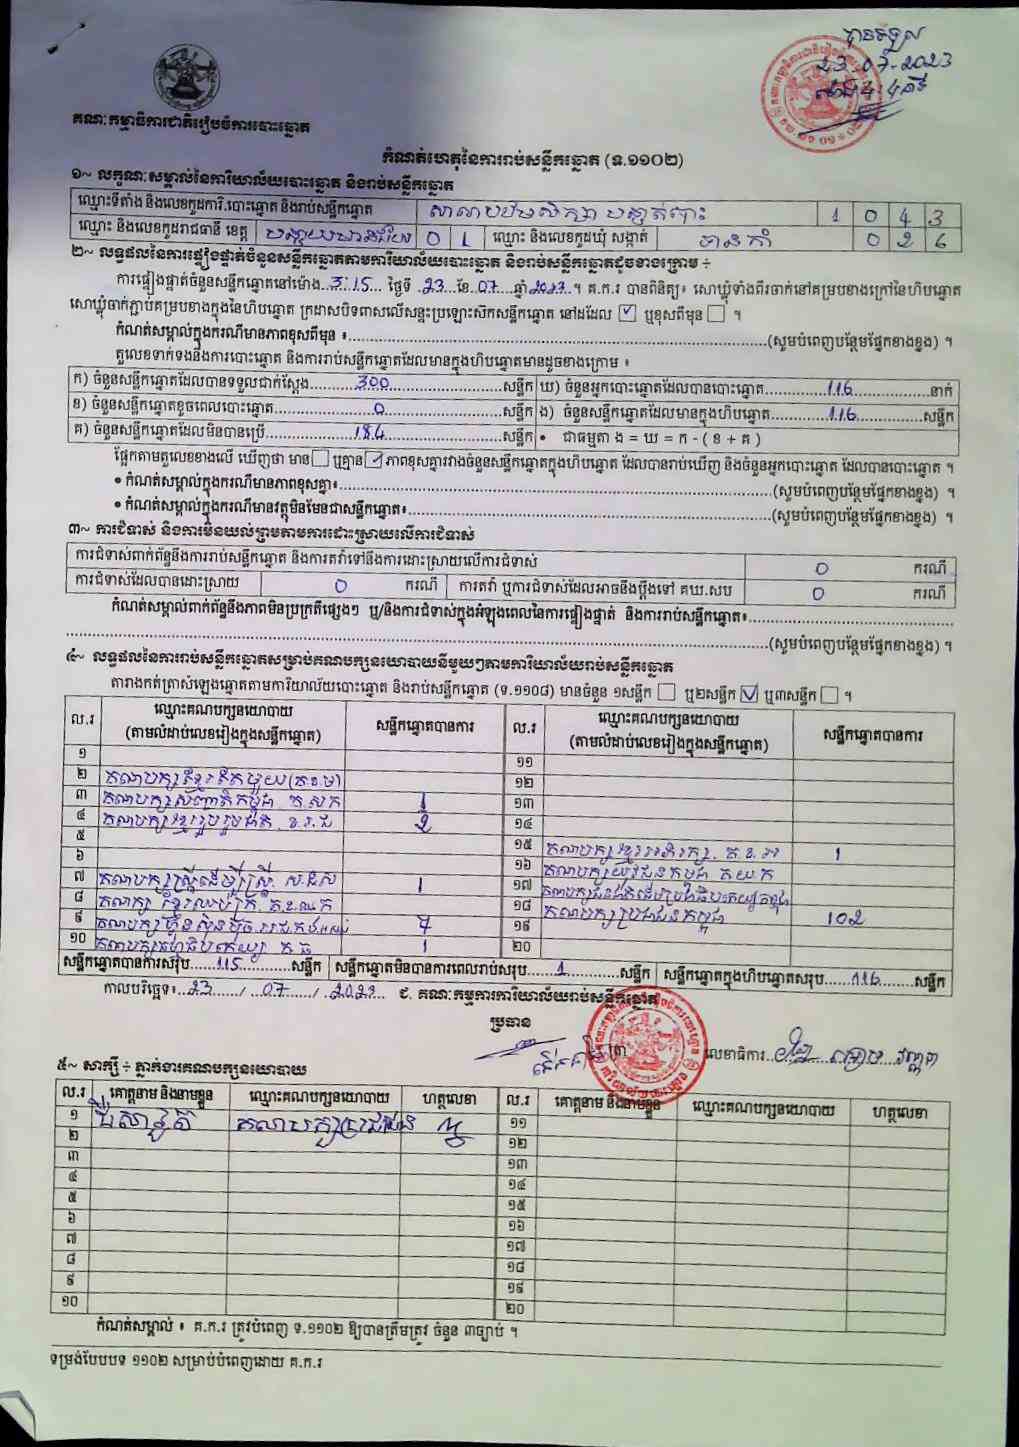 បានទទួល
23.07.2023
គណៈកម្មាធិការជាតិរៀបចំការបោះឆ្នោត
កំណត់ហេតុនៃការរាប់សន្លឹកឆ្នោត (ទ.១១០២)
១~ លក្ខណៈសម្គាល់នៃការិយាល័យបោះឆ្នោត និងរាប់សន្លឹកឆ្នោត
ឈ្មោះទីតាំង និងលេខកូដការិ.បោះឆ្នោត និងរាប់សន្លឹកឆ្នោត សាលាបឋមសិក្សា 1 0 4 3
ឈ្មោះ និងលេខកូដរាជធានី ខេត្ត បន្ទាយមានជ័យ 0 1 ឈ្មោះ និងលេខកូដឃុំ សង្កាត់ 0 2 6
២~ លទ្ធផលនៃការផ្ទៀងផ្ទាត់ចំនួនសន្លឹកឆ្នោតតាមការិយាល័យបោះឆ្នោត និងរាប់សន្លឹកឆ្នោតដូចខាងក្រោម ÷
ការផ្ទៀងផ្ទាត់ចំនួនសន្លឹកឆ្នោតនៅម៉ោង..3:15... ថ្ងៃទី .23...ខែ.07....ឆ្នាំ.2023.។ គ.ក.រ បានពិនិត្យ៖ សោឃ្លុំទាំងពីរចាក់នៅគម្របខាងក្រៅនៃហិបឆ្នោត
សោឃ្លុំចាក់ភ្ជាប់គម្របខាងក្នុងនៃហិបឆ្នោត ក្រដាសបិទពាសលើសន្ទះប្រឡោះសឹកសន្លឹកឆ្នោត នៅដដែល ☑ ឬខុសពីមុន ☐ ។
កំណត់សម្គាល់ក្នុងករណីមានភាពខុសពីមុន ៖..........(សូមបំពេញបន្ថែមផ្នែកខាងខ្នង) ។
តួលេខទាក់ទងនឹងការបោះឆ្នោត និងការរាប់សន្លឹកឆ្នោតដែលមានក្នុងហិបឆ្នោតមានដូចខាងក្រោម ៖
ក) ចំនួនសន្លឹកឆ្នោតដែលបានទទួលជាក់ស្តែង..........300..........សន្លឹក ឃ) ចំនួនអ្នកបោះឆ្នោតដែលបានបោះឆ្នោត..........116..........នាក់
ខ) ចំនួនសន្លឹកឆ្នោតខូចពេលបោះឆ្នោត..........0..........សន្លឹក ង) ចំនួនសន្លឹកឆ្នោតដែលមានក្នុងហិបឆ្នោត..........116..........សន្លឹក
គ) ចំនួនសន្លឹកឆ្នោតដែលមិនបានប្រើ..........184..........សន្លឹក • ជាធម្មតា ង = ឃ = ក - ( ខ + គ )
ផ្អែកតាមតួលេខខាងលើ ឃើញថា មាន ☐ ឬគ្មាន ☑ ភាពខុសគ្នារវាងចំនួនសន្លឹកឆ្នោតក្នុងហិបឆ្នោត ដែលបានរាប់ឃើញ និងចំនួនអ្នកបោះឆ្នោត ដែលបានបោះឆ្នោត ។
• កំណត់សម្គាល់ក្នុងករណីមានភាពខុសគ្នា៖..........(សូមបំពេញបន្ថែមផ្នែកខាងខ្នង) ។
• កំណត់សម្គាល់ក្នុងករណីមានវត្ថុមិនមែនជាសន្លឹកឆ្នោត៖..........(សូមបំពេញបន្ថែមផ្នែកខាងខ្នង) ។
៣~ ការជំទាស់ និងការមិនយល់ព្រមតាមការដោះស្រាយលើការជំទាស់
ការជំទាស់ពាក់ព័ន្ធនឹងការរាប់សន្លឹកឆ្នោត និងការតវ៉ាទៅនឹងការដោះស្រាយលើការជំទាស់ 0 ករណី
ការជំទាស់ដែលបានដោះស្រាយ 0 ករណី ការតវ៉ា ឬការជំទាស់ដែលអាចនឹងប្តឹងទៅ គឃ.សប 0 ករណី
កំណត់សម្គាល់ពាក់ព័ន្ធនឹងភាពមិនប្រក្រតីផ្សេងៗ ឬ/និងការជំទាស់ក្នុងអំឡុងពេលនៃការផ្ទៀងផ្ទាត់ និងការរាប់សន្លឹកឆ្នោត៖..........
..........(សូមបំពេញបន្ថែមផ្នែកខាងខ្នង) ។
៤~ លទ្ធផលនៃការរាប់សន្លឹកឆ្នោតសម្រាប់គណបក្សនយោបាយនីមួយៗតាមការិយាល័យរាប់សន្លឹកឆ្នោត
តារាងកត់ត្រាសំឡេងឆ្នោតតាមការិយាល័យបោះឆ្នោត និងរាប់សន្លឹកឆ្នោត (ទ.១១០៨) មានចំនួន ១សន្លឹក ☐ ឬ២សន្លឹក ☑ ឬ៣សន្លឹក ☐ ។
ល.រ ឈ្មោះគណបក្សនយោបាយ (តាមលំដាប់លេខរៀងក្នុងសន្លឹកឆ្នោត) សន្លឹកឆ្នោតបានការ ល.រ ឈ្មោះគណបក្សនយោបាយ (តាមលំដាប់លេខរៀងក្នុងសន្លឹកឆ្នោត) សន្លឹកឆ្នោតបានការ
១ ១១
២ គណបក្សខ្មែរតែមួយ ១២
៣ គណបក្សសញ្ជាតិកម្ពុជា 1 ១៣
៤ គណបក្សខ្មែររួបរួមជាតិ 2 ១៤
៥ ១៥ គណបក្សខ្មែរអភិរក្ស 1
៦ ១៦ គណបក្សយុវជនកម្ពុជា
៧ គណបក្សស្រ្តីដើម្បីស្រ្តី 1 ១៧
៨ ១៨ គណបក្សប្រជាជនកម្ពុជា 102
៩ គណបក្សហ្វ៊ុនស៊ិនប៉ិច 7 ១៩
១០ 1 ២០
សន្លឹកឆ្នោតបានការសរុប......115......សន្លឹក សន្លឹកឆ្នោតមិនបានការពេលរាប់សរុប......1......សន្លឹក សន្លឹកឆ្នោតក្នុងហិបឆ្នោតសរុប......116......សន្លឹក
កាលបរិច្ឆេទ៖..23....../ ..07....../ ..2023.. ជ. គណៈកម្មការការិយាល័យរាប់សន្លឹកឆ្នោត
ប្រធាន
លេខាធិការ
៥~ សាក្សី ÷ ភ្នាក់ងារគណបក្សនយោបាយ
ល.រ គោត្តនាម និងនាមខ្លួន ឈ្មោះគណបក្សនយោបាយ ហត្ថលេខា ល.រ គោត្តនាម និងនាមខ្លួន ឈ្មោះគណបក្សនយោបាយ ហត្ថលេខា
១ គណបក្សប្រជាជន ១១
២ ១២
៣ ១៣
៤ ១៤
៥ ១៥
៦ ១៦
៧ ១៧
៨ ១៨
៩ ១៩
១០ ២០
កំណត់សម្គាល់ ៖ គ.ក.រ ត្រូវបំពេញ ទ.១១០២ ឱ្យបានត្រឹមត្រូវ ចំនួន ៣ច្បាប់ ។
ទម្រង់បែបបទ ១១០២ សម្រាប់បំពេញដោយ គ.ក.រ